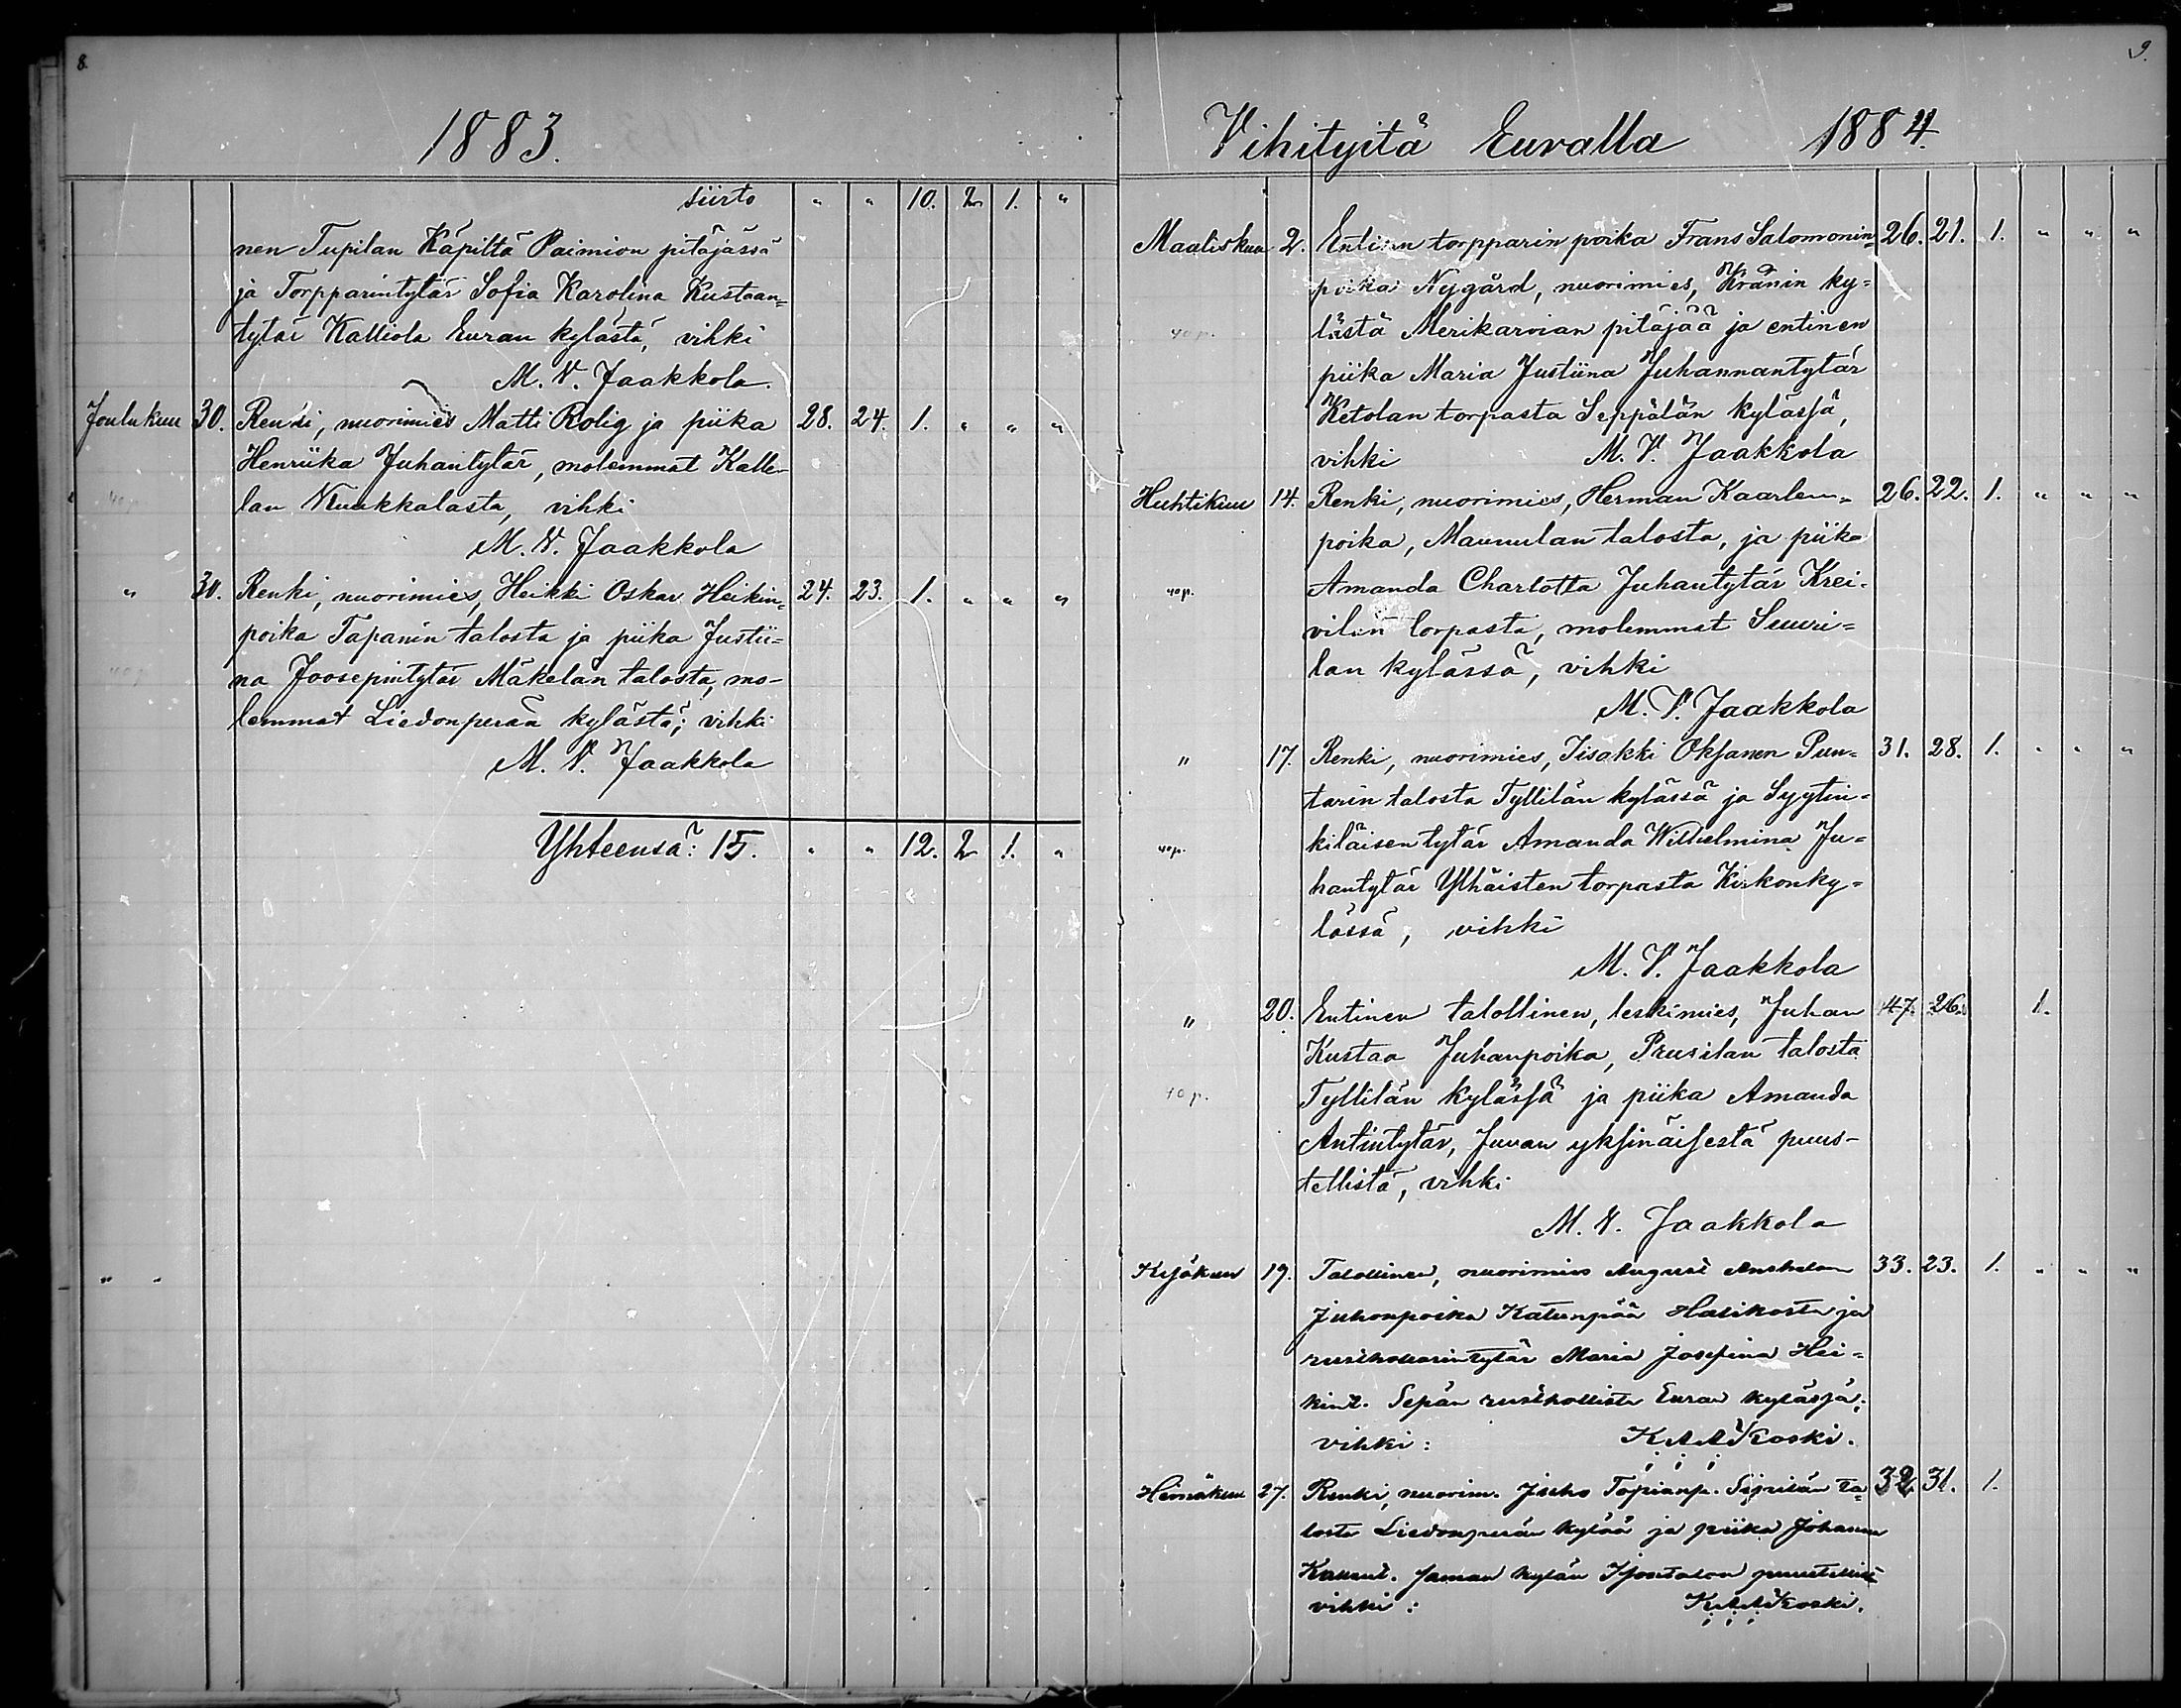 8.
1883.
siirto " " 10. 2 1. "
nen Tupilan Käpiltä Paimion pitäjässä
ja Torpparintytär Sofia Karolina Kustaan=
tytär Kalliola Euran kylästä, vihki
M. V. Jaakkola.
Joulukuu 30. Renki, nuorimies Matti Rolig ja piika 28. 24. 1. " " "
Henriika Juhantytär, molemmat Kalle-
40 p. lan Naukkalasta, vihki
M. V. Jaakkola
" 30. Renki, nuorimies, Heikki Oskar Heikin= 24. 23. 1. " " "
poika Tapanin talosta ja piika Justii=
40 p. na Joosepintytär Mäkelän talosta, mo-
lemmat Liedonperän kylästä; vihki
M. V. Jaakkola
Yhteensä: 15. " " 12. 2 1. "
" "
9.
Vihityitä Euralla 1884.
Maaliskuu 2. Entinen torpparin poika Frans Salomonin= 26. 21. 1. " " "
poika Nygård, nuorimies, Krånin ky=
40 p. lästä Merikarvian pitäjää ja entinen
piika Maria Justiina Juhannantytär
Ketolan torpasta Seppälän kylässä,
vihki M. V. Jaakkola
Huhtikuu 14. Renki, nuorimies, Herman Kaarlen= 26. 22. 1. " " "
poika, Maunulan talosta, ja piika
40 p. Amanda Charlotta Juhantytär Krei=
vilän torpasta, molemmat Suuri=
lan kylässä, vihki
M. V. Jaakkola
" 17. Renki, nuorimies, Iisakki Oksanen Pun= 31. 28. 1. " " "
tarin talosta Tyllilän kylässä ja Syytin=
40 p. kiläisen tytär Amanda Wilhelmina Ju=
hantytär Ylhäisten torpasta Kirkonky=
lässä, vihki
M. V. Jaakkola
" 20. Entinen talollinen, leskimies, Juhan 47. 26. 1.
Kustaa Juhanpoika, Prusilan talosta
40 p. Tyllilän kylässä ja piika Amanda
Antintytär, Juvan yksinäisestä puus-
tellistä, vihki
M. V. Jaakkola
Kesäkuu 19. Talollinen, nuorimies August Anshelm 33. 23. 1. " " "
Juhonpoika Katunpää Halikosta ja
rusthollarintytär Maria Josefina Hei=
kint. Sepän rusthollista Euran kylässä;
vihki: K A A Koski.
Heinäkuu 27. Renki, nuorim. Juho Topianp. Sipilän ta= 32 31. 1.
losta Liedonperän kylää ja piika Johanna
Kallent. saman kylän puustellista
vihki: K A A Koski.